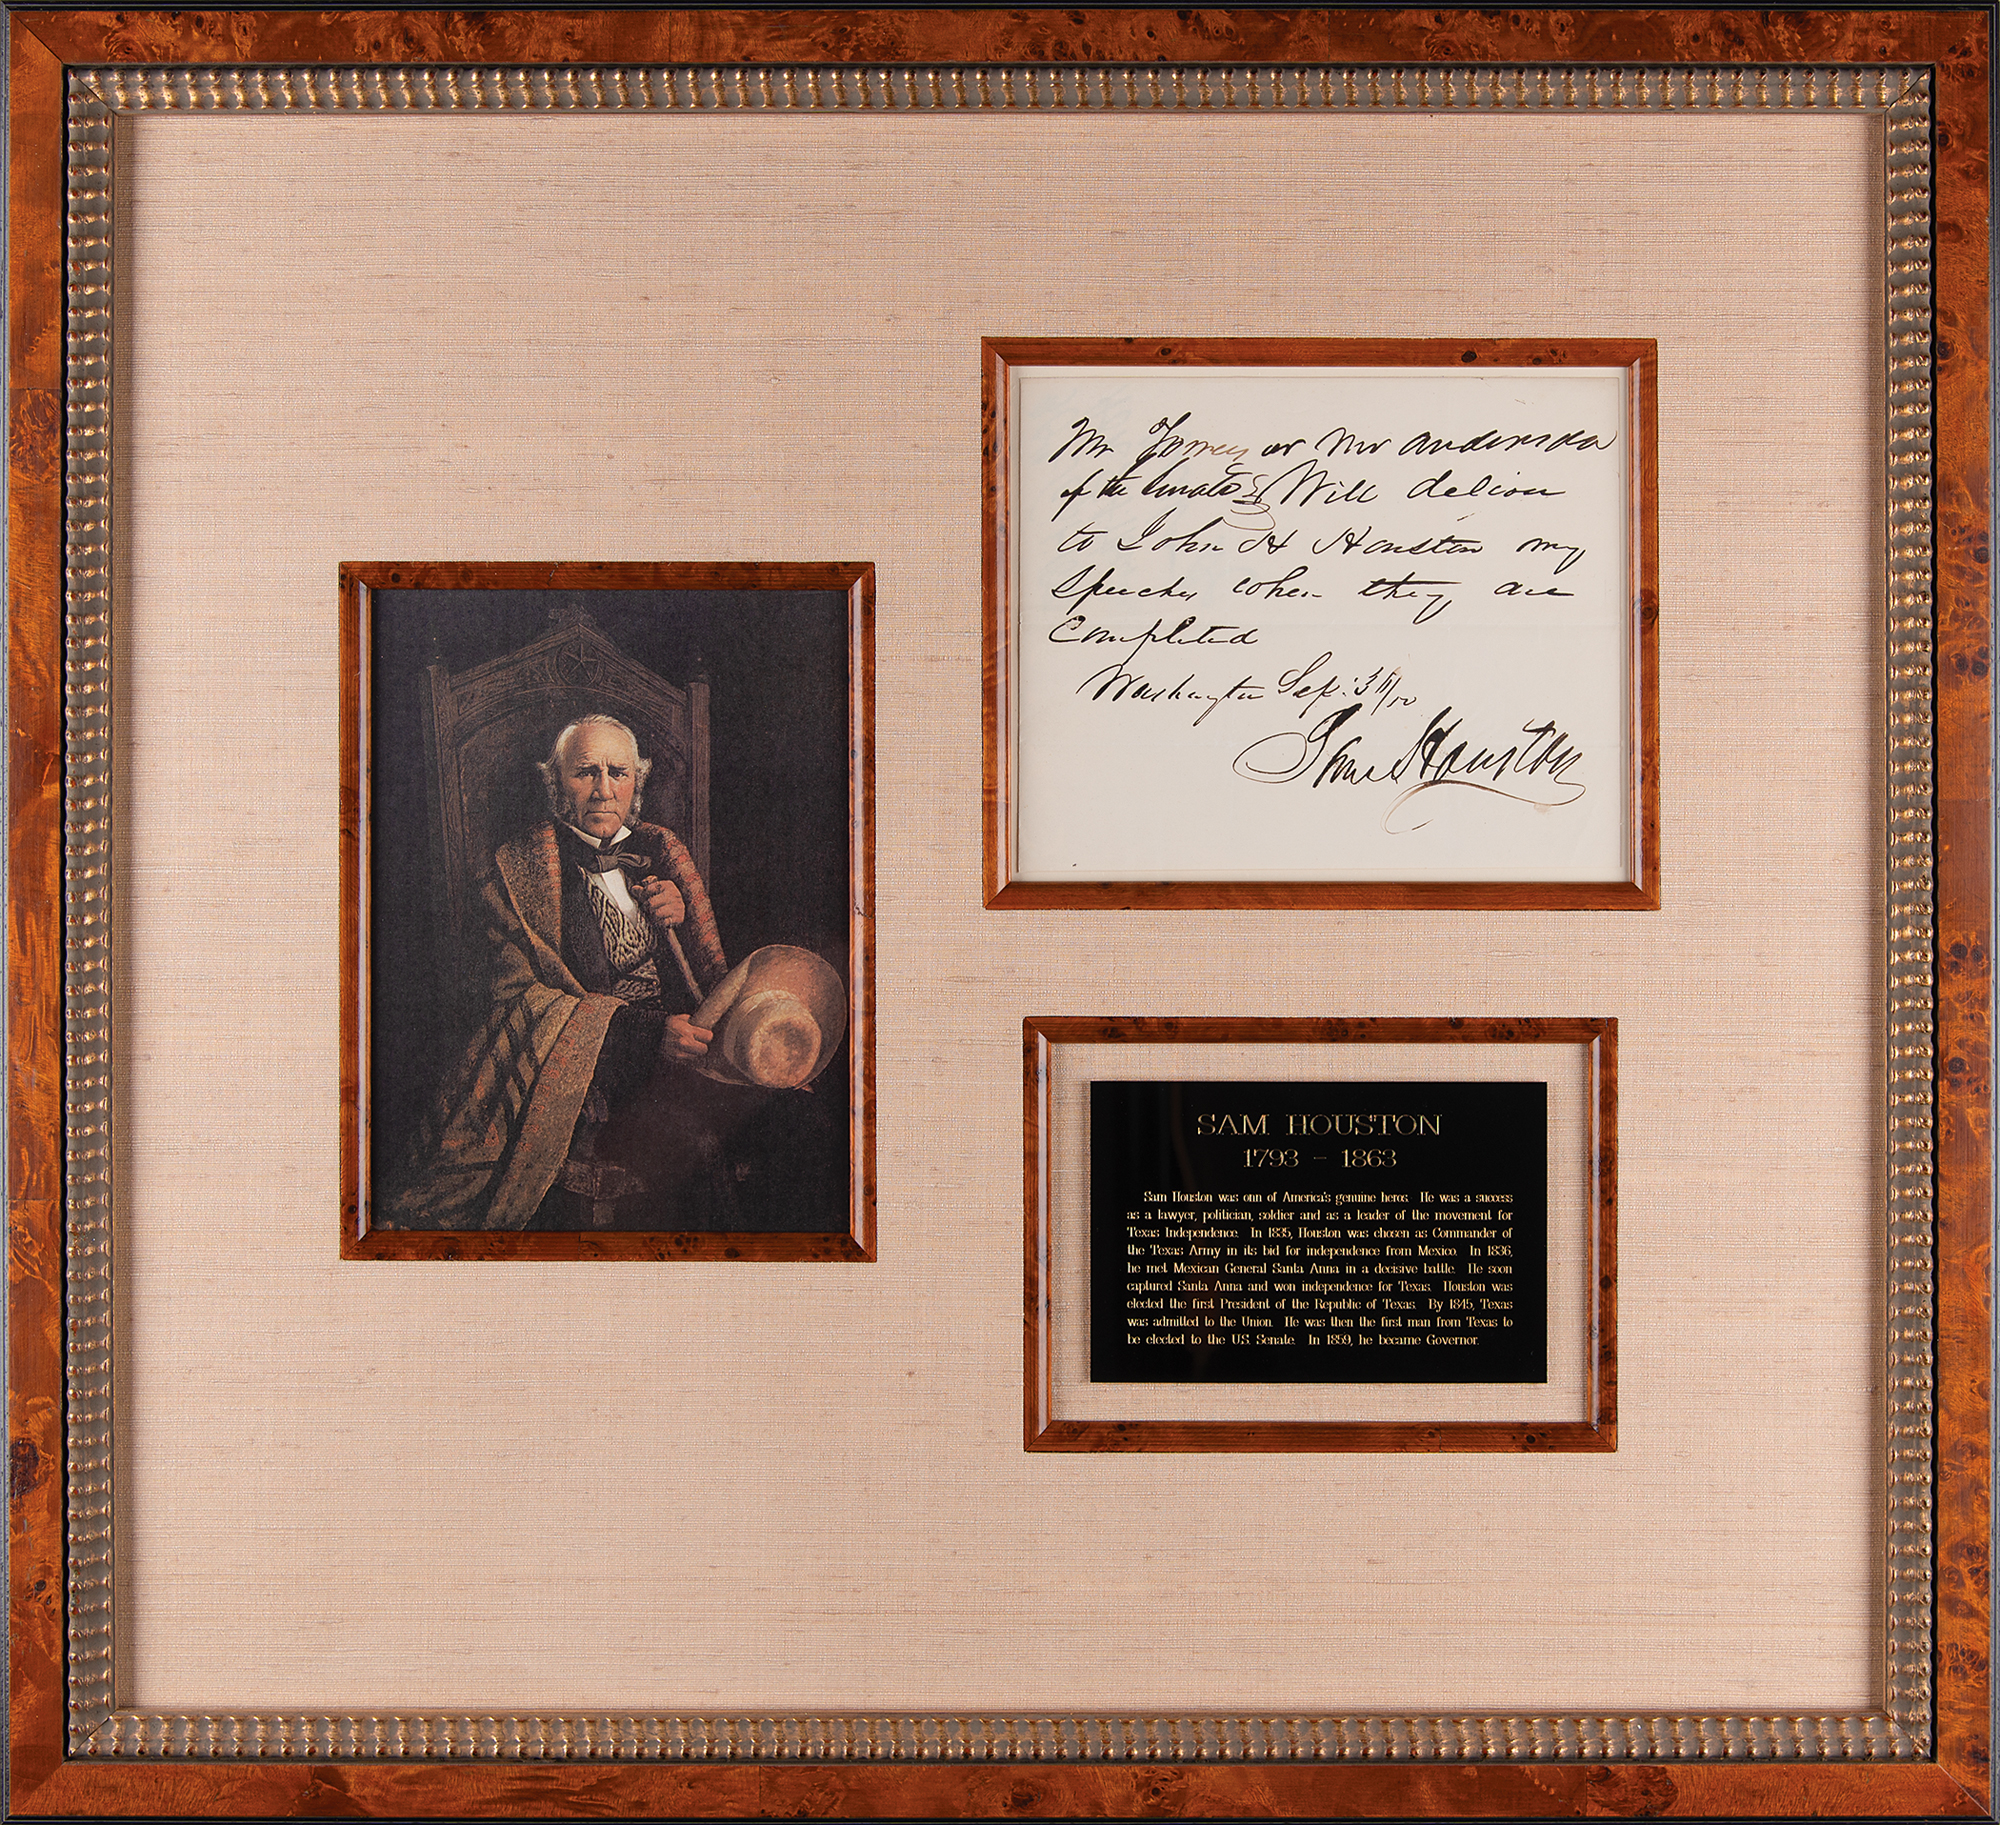 Mr or Mr Anderson
of the Senate Will deliver
to John H Houston my
Speeches when they are
Completed
Washington Sep: 3
Sam Houston
SAM HOUSTON
1793 - 1863
Sam Houston was onn of America's genuine heros. He was a success
as a lawyer, politician, soldier and as a leader of the movement for
Texas Independence. In 1835, Houston was chosen as Commander of
the Texas Army in its bid for independence from Mexico. In 1836,
he met Mexican General Santa Anna in a decisive battle. He soon
captured Santa Anna and won independence for Texas. Houston was
elected the first President of the Republic of Texas. By 1845, Texas
was admitted to the Union. He was then the first man from Texas to
be elected to the U.S. Senate. In 1859, he became Governor.